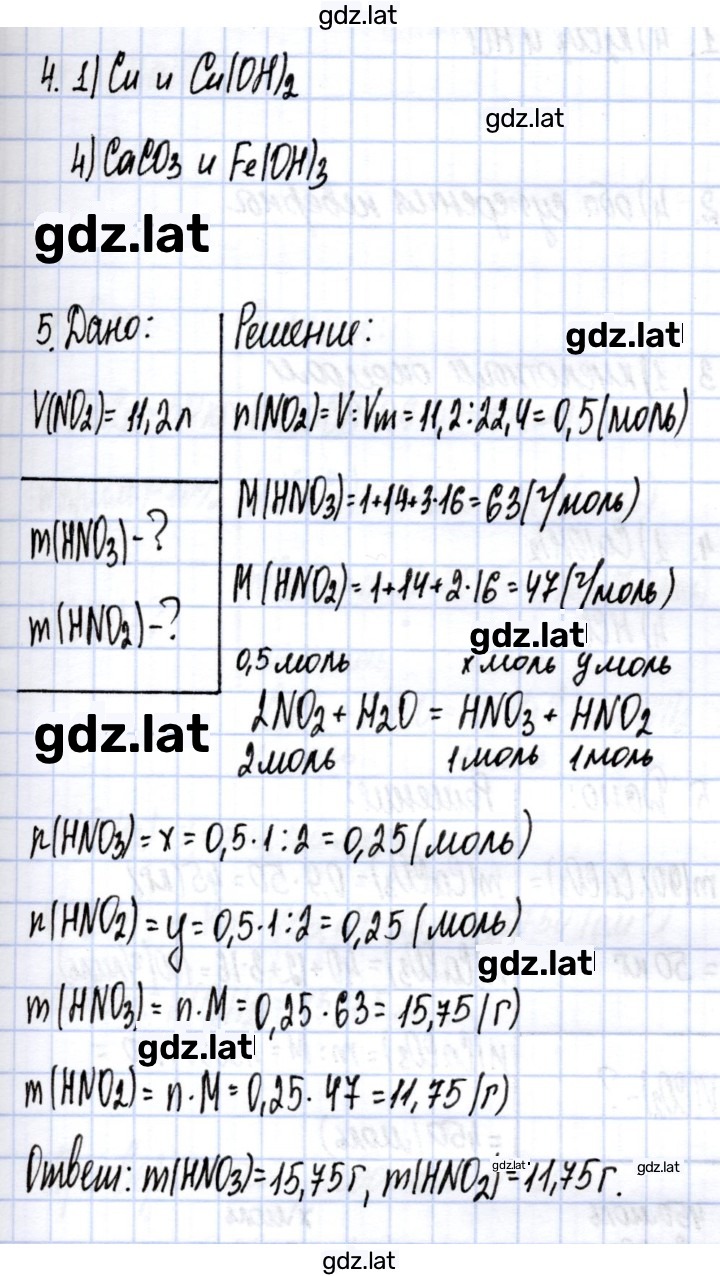 gdz.lat
4. 1) Cu и Cu(OH)₂
gdz.lat
4) CaCO₃ и Fe(OH)₃
gdz.lat
5. Дано:
V(NO₂) = 11,2 л
m(HNO₃) - ?
m(HNO₂) - ?
Решение:
gdz.lat
n(NO₂) = V : Vm = 11,2 : 22,4 = 0,5 (моль)
M(HNO₃) = 1+14+3·16 = 63 (г/моль)
M(HNO₂) = 1+14+2·16 = 47 (г/моль)
gdz.lat
0,5 моль x моль y моль
2NO₂ + H₂O = HNO₃ + HNO₂
gdz.lat
2 моль 1 моль 1 моль
n(HNO₃) = x = 0,5·1:2 = 0,25 (моль)
n(HNO₂) = y = 0,5·1:2 = 0,25 (моль)
gdz.lat
m(HNO₃) = n·M = 0,25·63 = 15,75 (г)
gdz.lat
m(HNO₂) = n·M = 0,25·47 = 11,75 (г)
gdz.lat
gdz.lat
Ответ: m(HNO₃) = 15,75 г, m(HNO₂) = 11,75 г.
gdz.lat